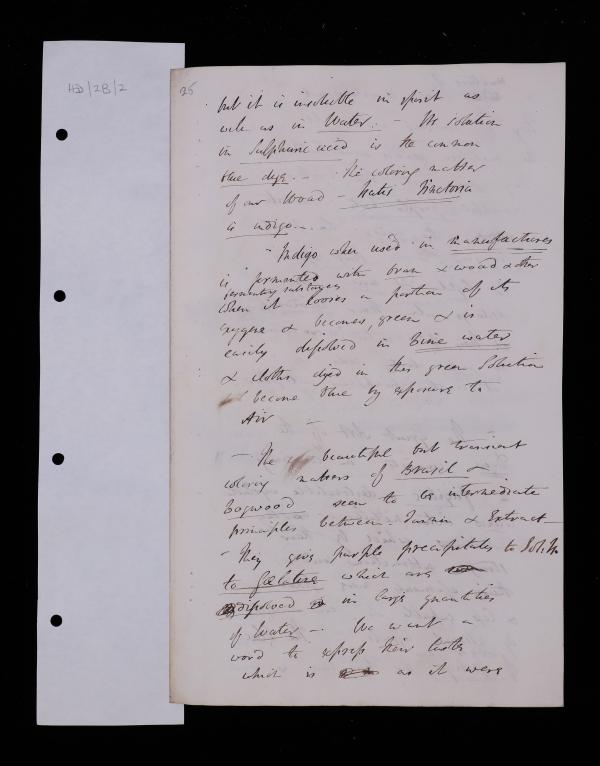 HD/2B/2
26
but it is insoluble in spirit as
well as in Water. - Its solution
in Sulphuric acid is the common
blue dye. - The coloring matter
of our Woad - Isatis Tinctoria
is indigo. -
- Indigo when used in manufactures
is fermented with bran & woad & other
fermenting substances
when it looses a portion of its
oxygene & becomes green & is
easily dissolved in Lime water
& cloths dyed in this green Solution
become blue by exposure to
Air -
- The beautiful but transient
coloring matters of Brazil &
Logwood seem to be intermediate
principles between Tannin & Extract -
- They give purple precipitates to Sol.
to Gelatine which are
dissolved in large quantities
of Water - We want a
word to express their taste
which is as it were